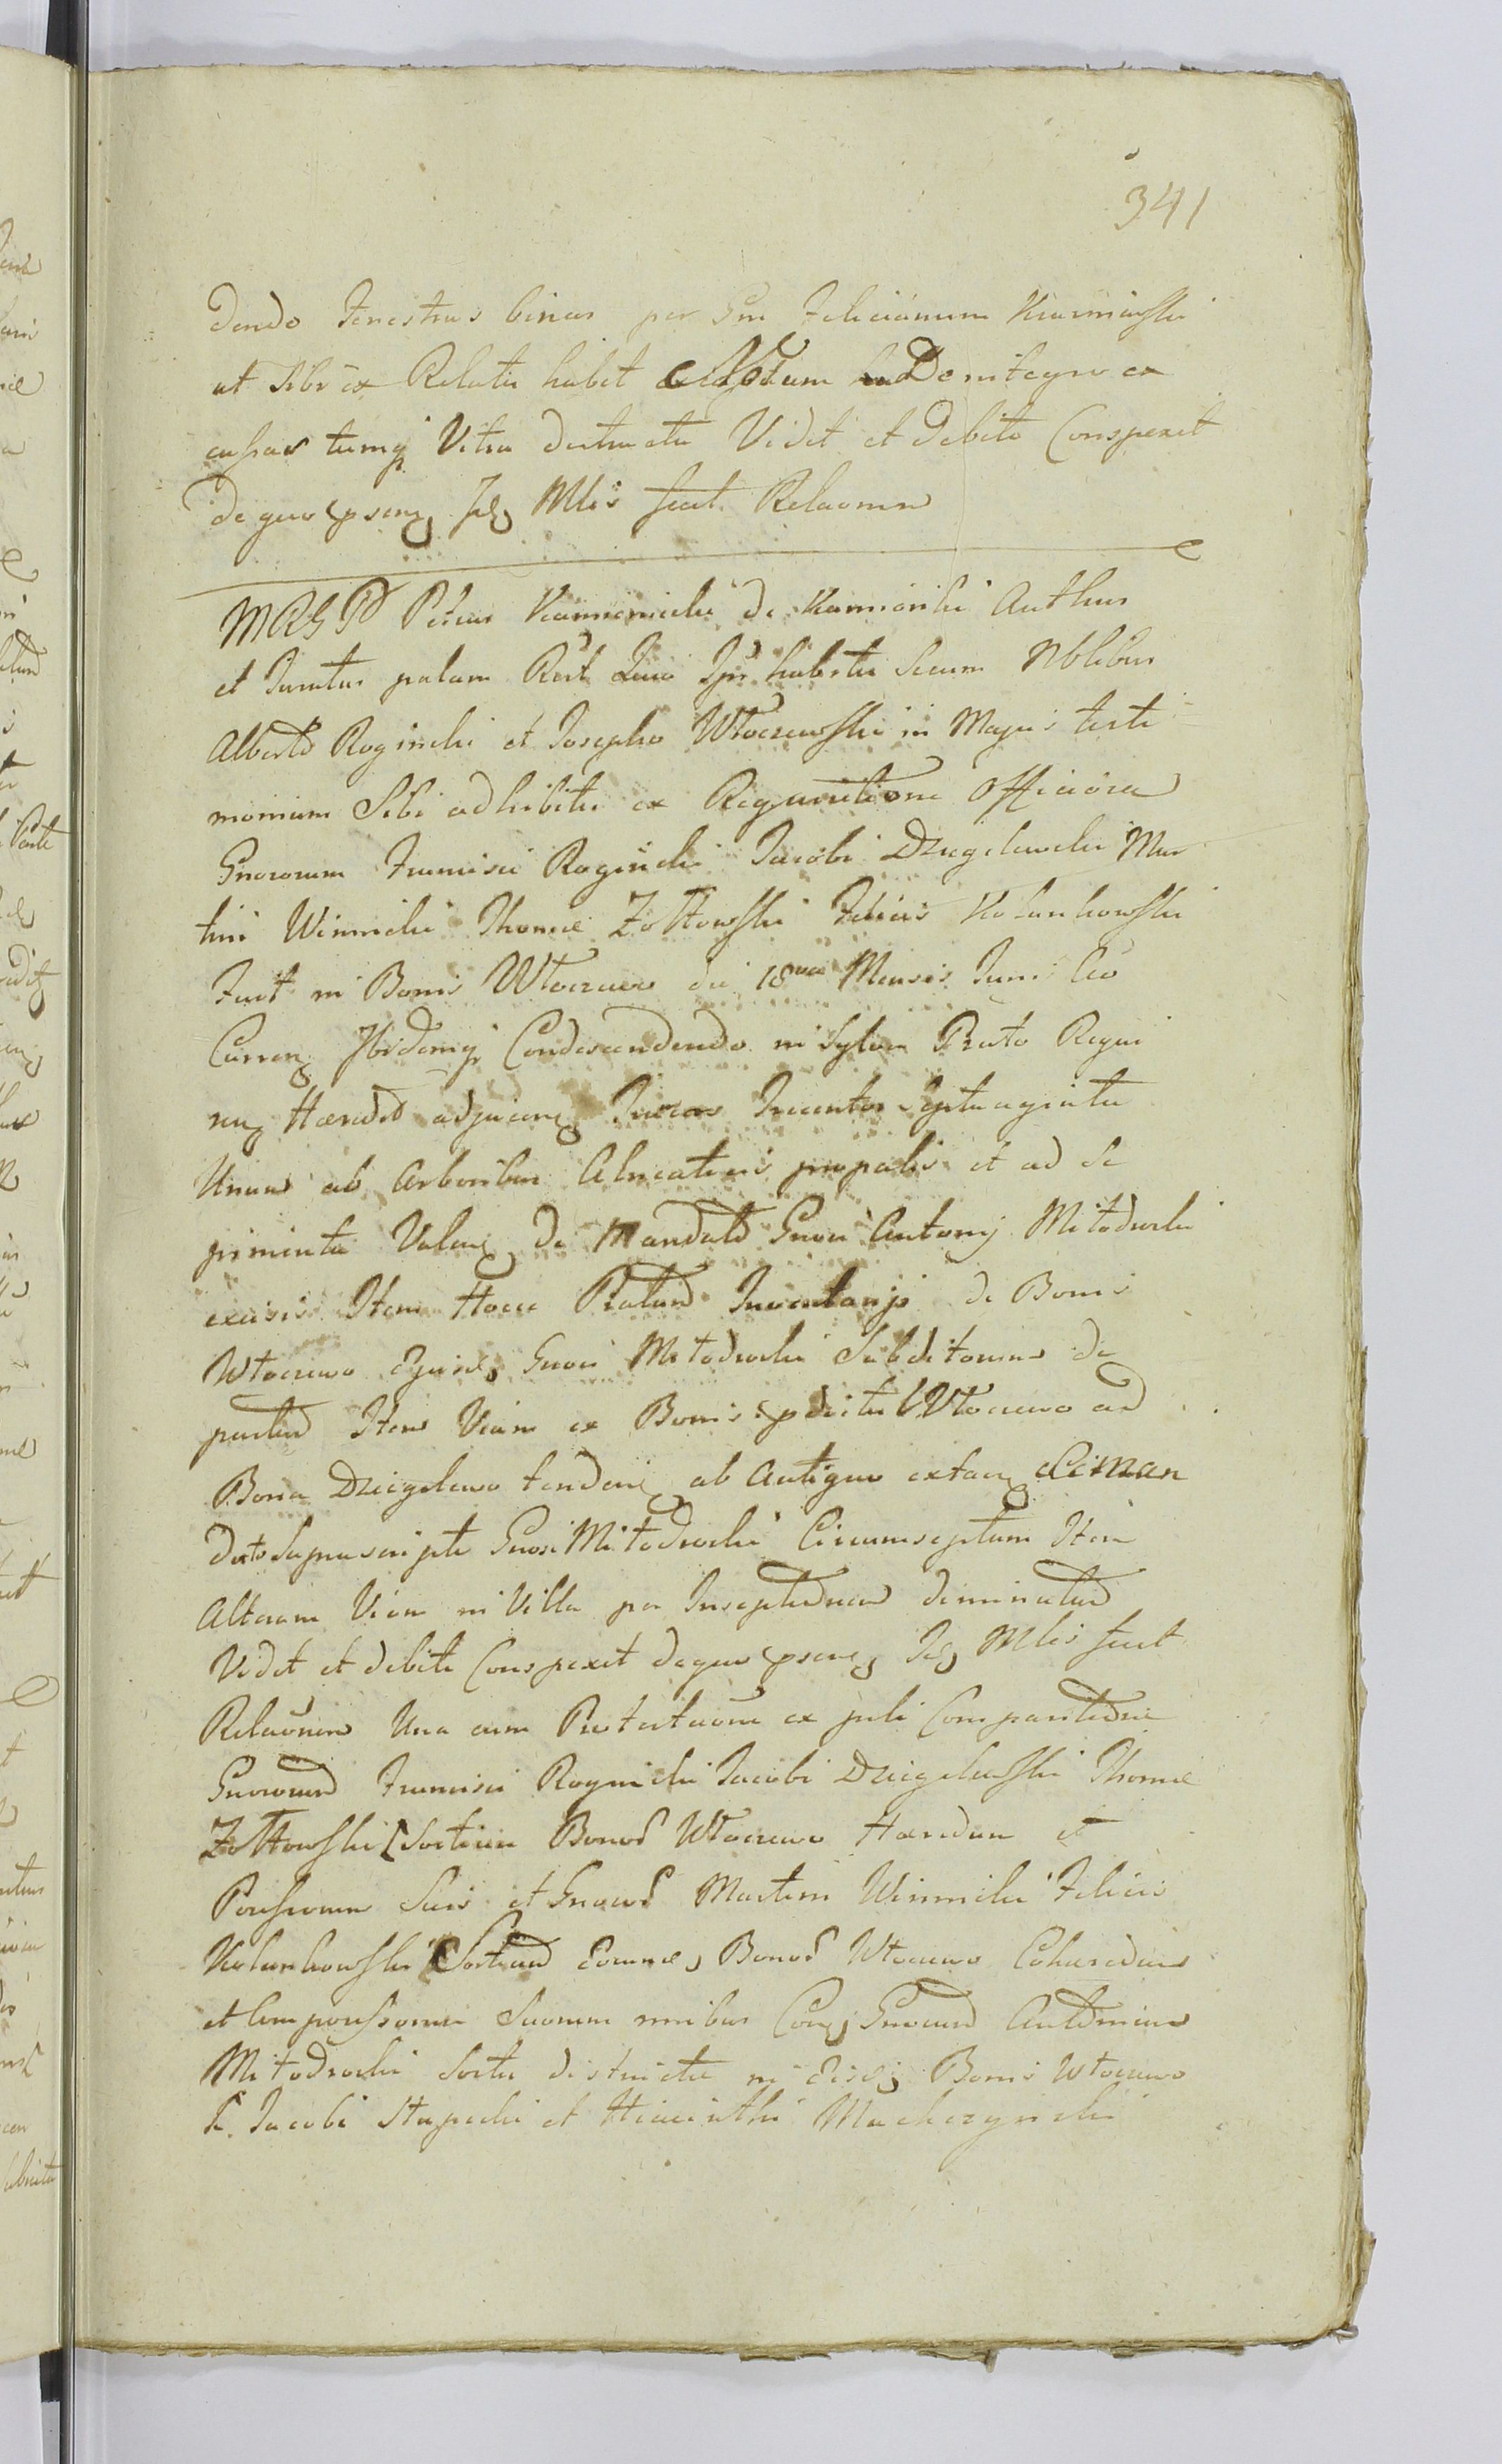 341
dendo fenestras binas per Gm Felicianum Kramiewski
ut sibi ex Relatu habet
cussas tumq Vitra destructa Vidit et debite Conspexit
de quo psenq Jdq Mlis fecit Relaonem
MRGP Petrus Kamienicki de Kamionki Authus
et Juratus palam Rect Quia Ipse habitis secum Nblibus
Alberto Roginski et Josepho Wtoczewski in Majus testi
monium Sibi adhibitis ex Requisitione Officiosa
Gnororum Francisci Roginski Jacobi Dzięgelewski Mar
tini Winnicki Thomæ Zołtowski Felicis Kołankowski
Fuit in Bonis Wtoczewo die 18va Mensis Juni Ao
Curren Ibidemq Condescendendo in Sylva Prato
Hæredit adjacenq Truncos Trecentos Septuaginta
Unum ab Arboribus Alneatieis propalis et ad Se
pimenta Valenq de Mandato Gnosi Antonij Mitodrocki
excisis Item Hocce Pratum Inventarijs de Bonis
Wtoczewo Ejusdq Gnosi Mitodrocki Subditorum de
pastum Item Viam ex Bonis pdictis Wtoczewo ad
Bona Dzięgelewo tendenq ab Antiquo extanq de Man
dato Suprascripti Gnosi Mitodrocki Circumseptum Item
Alteram Viam in Villa per Inseptionem diminutam
Vidit et debite Conspexit dequo psenq Jdq Mlis fecit
Relaonem Una cum Protestaone ex psli Comparitione
Gnororum Francisci Roginski Jacobi Dzięgelewski Thomæ
Zołtowski Sortium Bonor Wtoczewo Hæredum et
Possessorum Suis et Gnosor Martini Winnicki Felicis
Kołankowski Sortium Eorundq Bonor Wtoczewo Cohæredum
et Compossessorum Suorum nnibus Conq Gnosum Antonium
Mitodrocki Sortis districtæ in Eisdq Bonis Wtoczewo
h. Jacobi Stupecki et Hiacinthi Mucharzynski